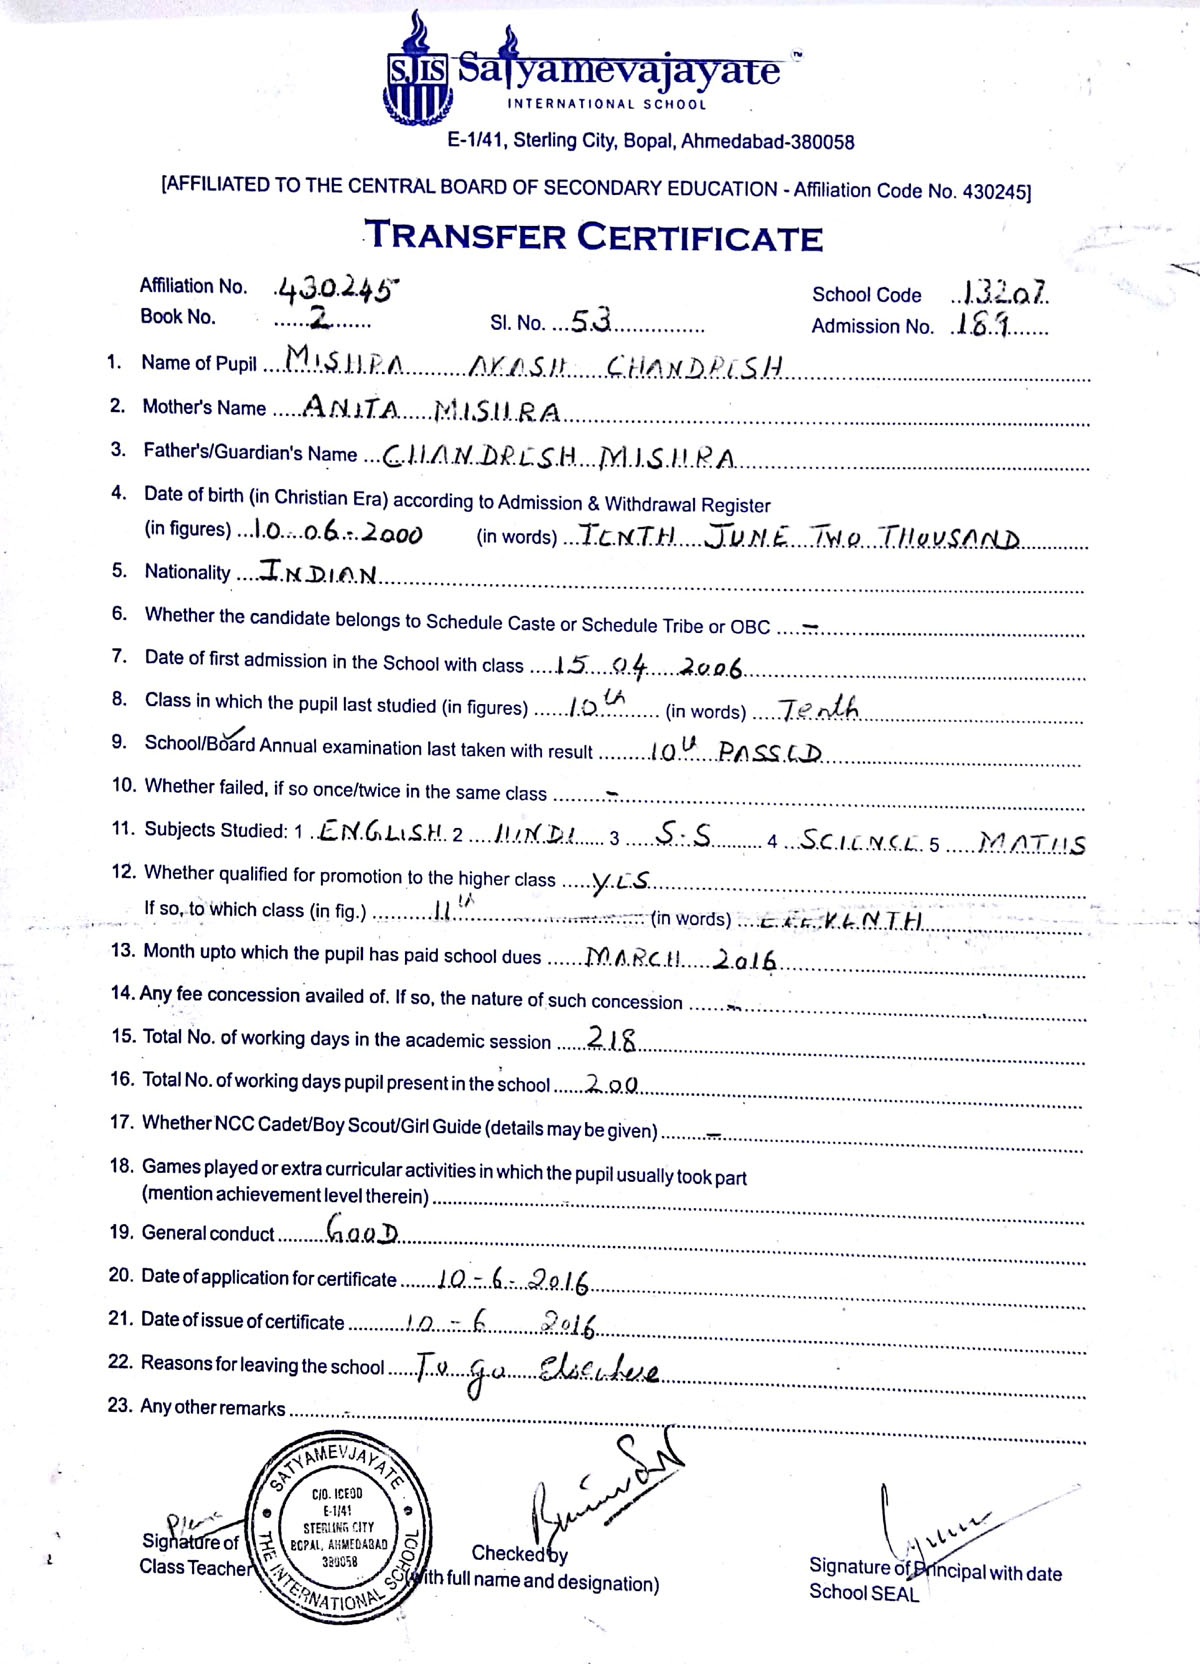 SJIS Satyamevajayate™
INTERNATIONAL SCHOOL
E-1/41, Sterling City, Bopal, Ahmedabad-380058
[AFFILIATED TO THE CENTRAL BOARD OF SECONDARY EDUCATION - Affiliation Code No. 430245]
TRANSFER CERTIFICATE
Affiliation No. 430245 School Code 13207
Book No. 2 Sl. No. 53 Admission No. 189
1. Name of Pupil MISHRA AKASH CHANDRESH
2. Mother's Name ANITA MISHRA
3. Father's/Guardian's Name CHANDRESH MISHRA
4. Date of birth (in Christian Era) according to Admission & Withdrawal Register
(in figures) 10-06-2000 (in words) TENTH JUNE TWO THOUSAND
5. Nationality INDIAN
6. Whether the candidate belongs to Schedule Caste or Schedule Tribe or OBC –
7. Date of first admission in the School with class 15 04 2006
8. Class in which the pupil last studied (in figures) 10th (in words) Tenth
9. School/Board Annual examination last taken with result 10th PASSED
10. Whether failed, if so once/twice in the same class –
11. Subjects Studied: 1 ENGLISH 2 HINDI 3 S.S 4 SCIENCE 5 MATHS
12. Whether qualified for promotion to the higher class YES
If so, to which class (in fig.) 11th (in words)
13. Month upto which the pupil has paid school dues MARCH 2016
14. Any fee concession availed of. If so, the nature of such concession –
15. Total No. of working days in the academic session 218
16. Total No. of working days pupil present in the school 200
17. Whether NCC Cadet/Boy Scout/Girl Guide (details may be given) –
18. Games played or extra curricular activities in which the pupil usually took part
(mention achievement level therein)
19. General conduct GOOD
20. Date of application for certificate 10-6-2016
21. Date of issue of certificate 10-6 2016
22. Reasons for leaving the school To go Elsewhere
23. Any other remarks
SATYAMEVJAYATE
THE INTERNATIONAL SCHOOL
C/O. ICEOD
E-1/41
STERLING CITY
BOPAL, AHMEDABAD
380058
Signature of
Class Teacher
Checked by
(with full name and designation)
Signature of Principal with date
School SEAL